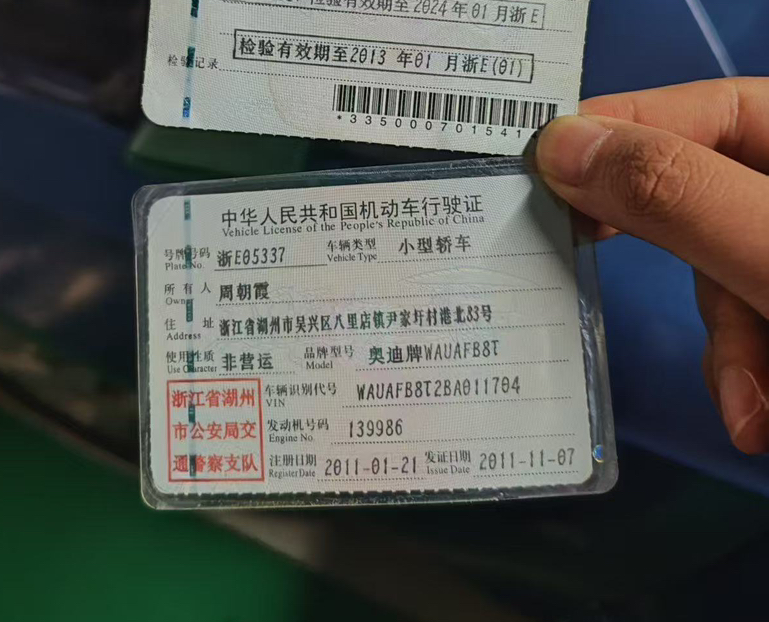 检验有效期至2024年01月浙E
检验记录
检验有效期至2013 年01 月浙E(01)
*335000701541
中华人民共和国机动车行驶证
Vehicle License of the People's Republic of China
号牌号码 浙E05337 车辆类型 小型轿车
Plate No. Vehicle Type
所有人 周朝霞
Owner
住址 浙江省湖州市吴兴区八里店镇尹家圩村港北83号
Address
使用性质 非营运 品牌型号 奥迪牌WAUAFB8T
Use Character Model
浙江省湖州 车辆识别代号 WAUAFB8T2BA011704
VIN
市公安局交 发动机号码 139986
Engine No.
通警察支队 注册日期 2011-01-21 发证日期 2011-11-07
Register Date Issue Date